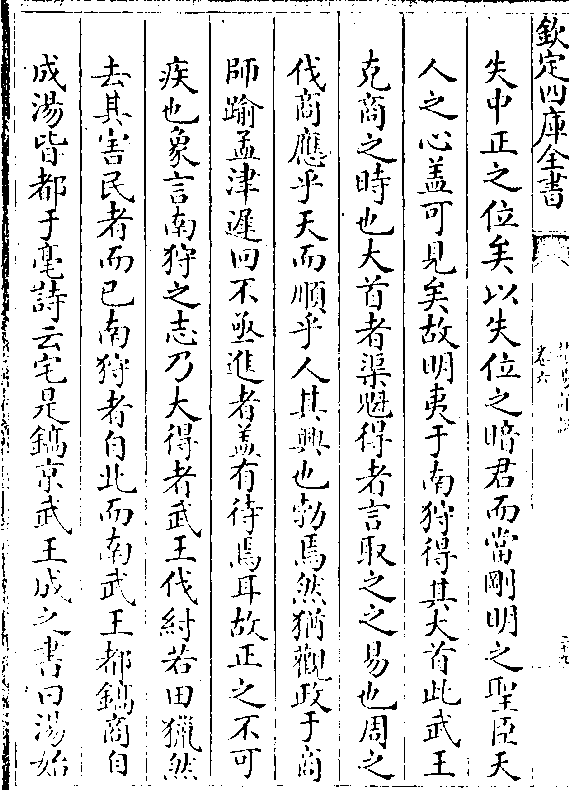 欽定四庫全書
卷六
失中正之位矣以失位之暗君而當剛明之聖臣天
人之心盖可見矣故明夷于南狩得其大首此武王
克商之時也大首者渠魁得者言取之之易也周之
伐商應乎天而順乎人其興也勃焉然猶觀政于商
師踰孟津遲回不亟進者盖有待焉耳故正之不可
疾也象言南狩之志乃大得者武王伐紂若田獵然
去其害民者而已南狩者自北而南武王都鎬商自
成湯皆都于亳詩云宅是鎬京武王成之書曰湯始